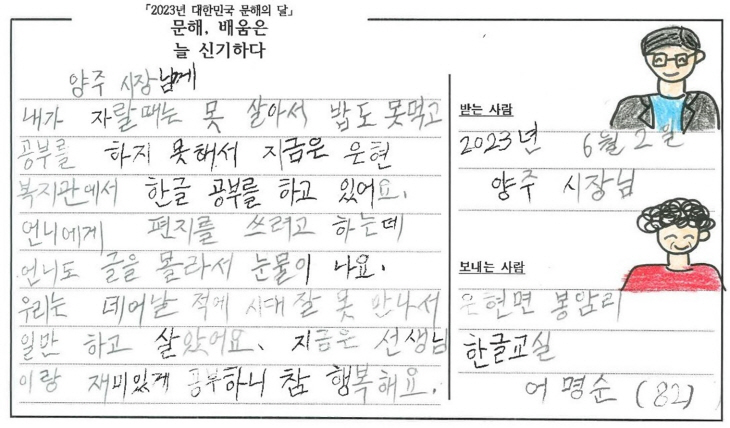 「2023년 대한민국 문해의 달」
문해, 배움은
늘 신기하다
양주 시장님께
내가 자랄때는 못 살아서 밥도 못먹고
공부를 하지 못해서 지금은 은현
복지관에서 한글 공부를 하고 있어요.
언니에게 편지를 쓰려고 하는데
언니도 글을 몰라서 눈물이 나요.
우리는 데어날 적에 시대 잘 못 만나서
일만 하고 살았어요. 지금은 선생님
이랑 재미있게 공부하니 참 행복해요.
받는 사람
2023년 6월 2일
양주 시장님
보내는 사람
은현면 봉암리
한글교실
어명순 (82)